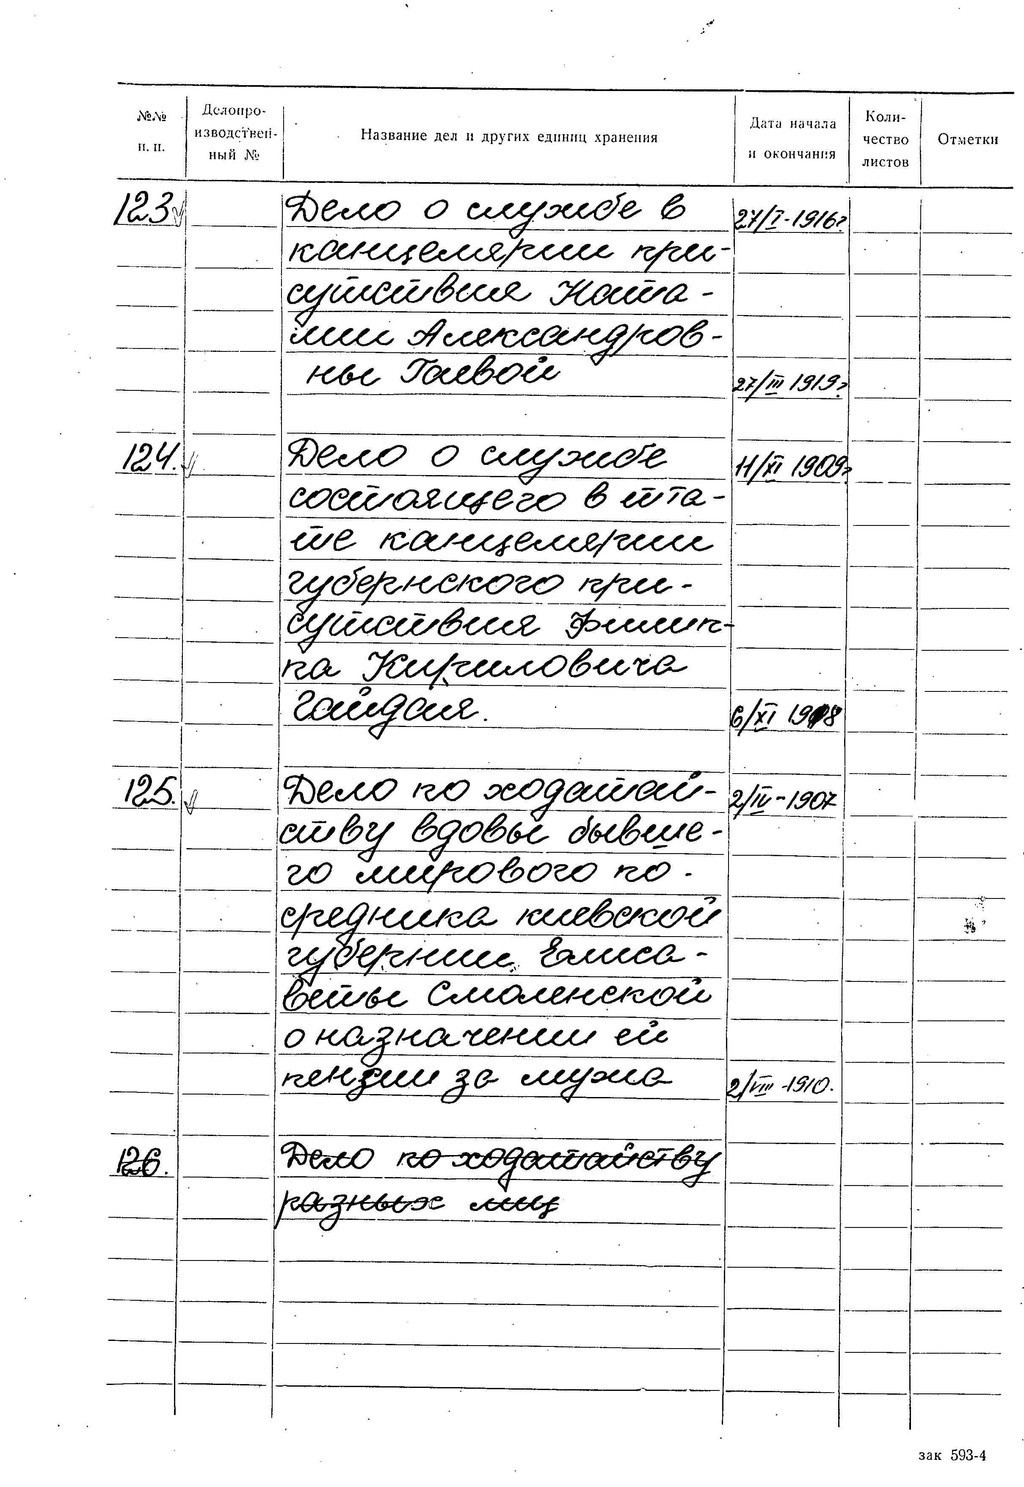 №№ п. п.
Делопро-
изводствен-
ный №
Название дел и других единиц хранения
Дата начала
и окончания
Коли-
чество
листов
Отметки
123. Дело о службе в 27/I-1916г
канцелярии при-
сутствия Ната-
лии Александров-
ны Гаевой 27/III 1919г
124. Дело о службе 11/XI 1909г
состоящего в шта-
те канцелярии
губернского при-
сутствия Филип-
па Кириловича
Гайдая. 6/XI 1918
125. Дело по ходатай- 2/IV-1907
ству вдовы бывше-
го мирового по-
средника киевской
губернии Елиса-
веты Смоленской
о назначении ей
пензии за мужа 2/VIII-1910.
126. Дело по ходатайству
разных лиц
зак 593-4